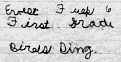 Ernest Fusk 6
First Grade
Birds Sing.